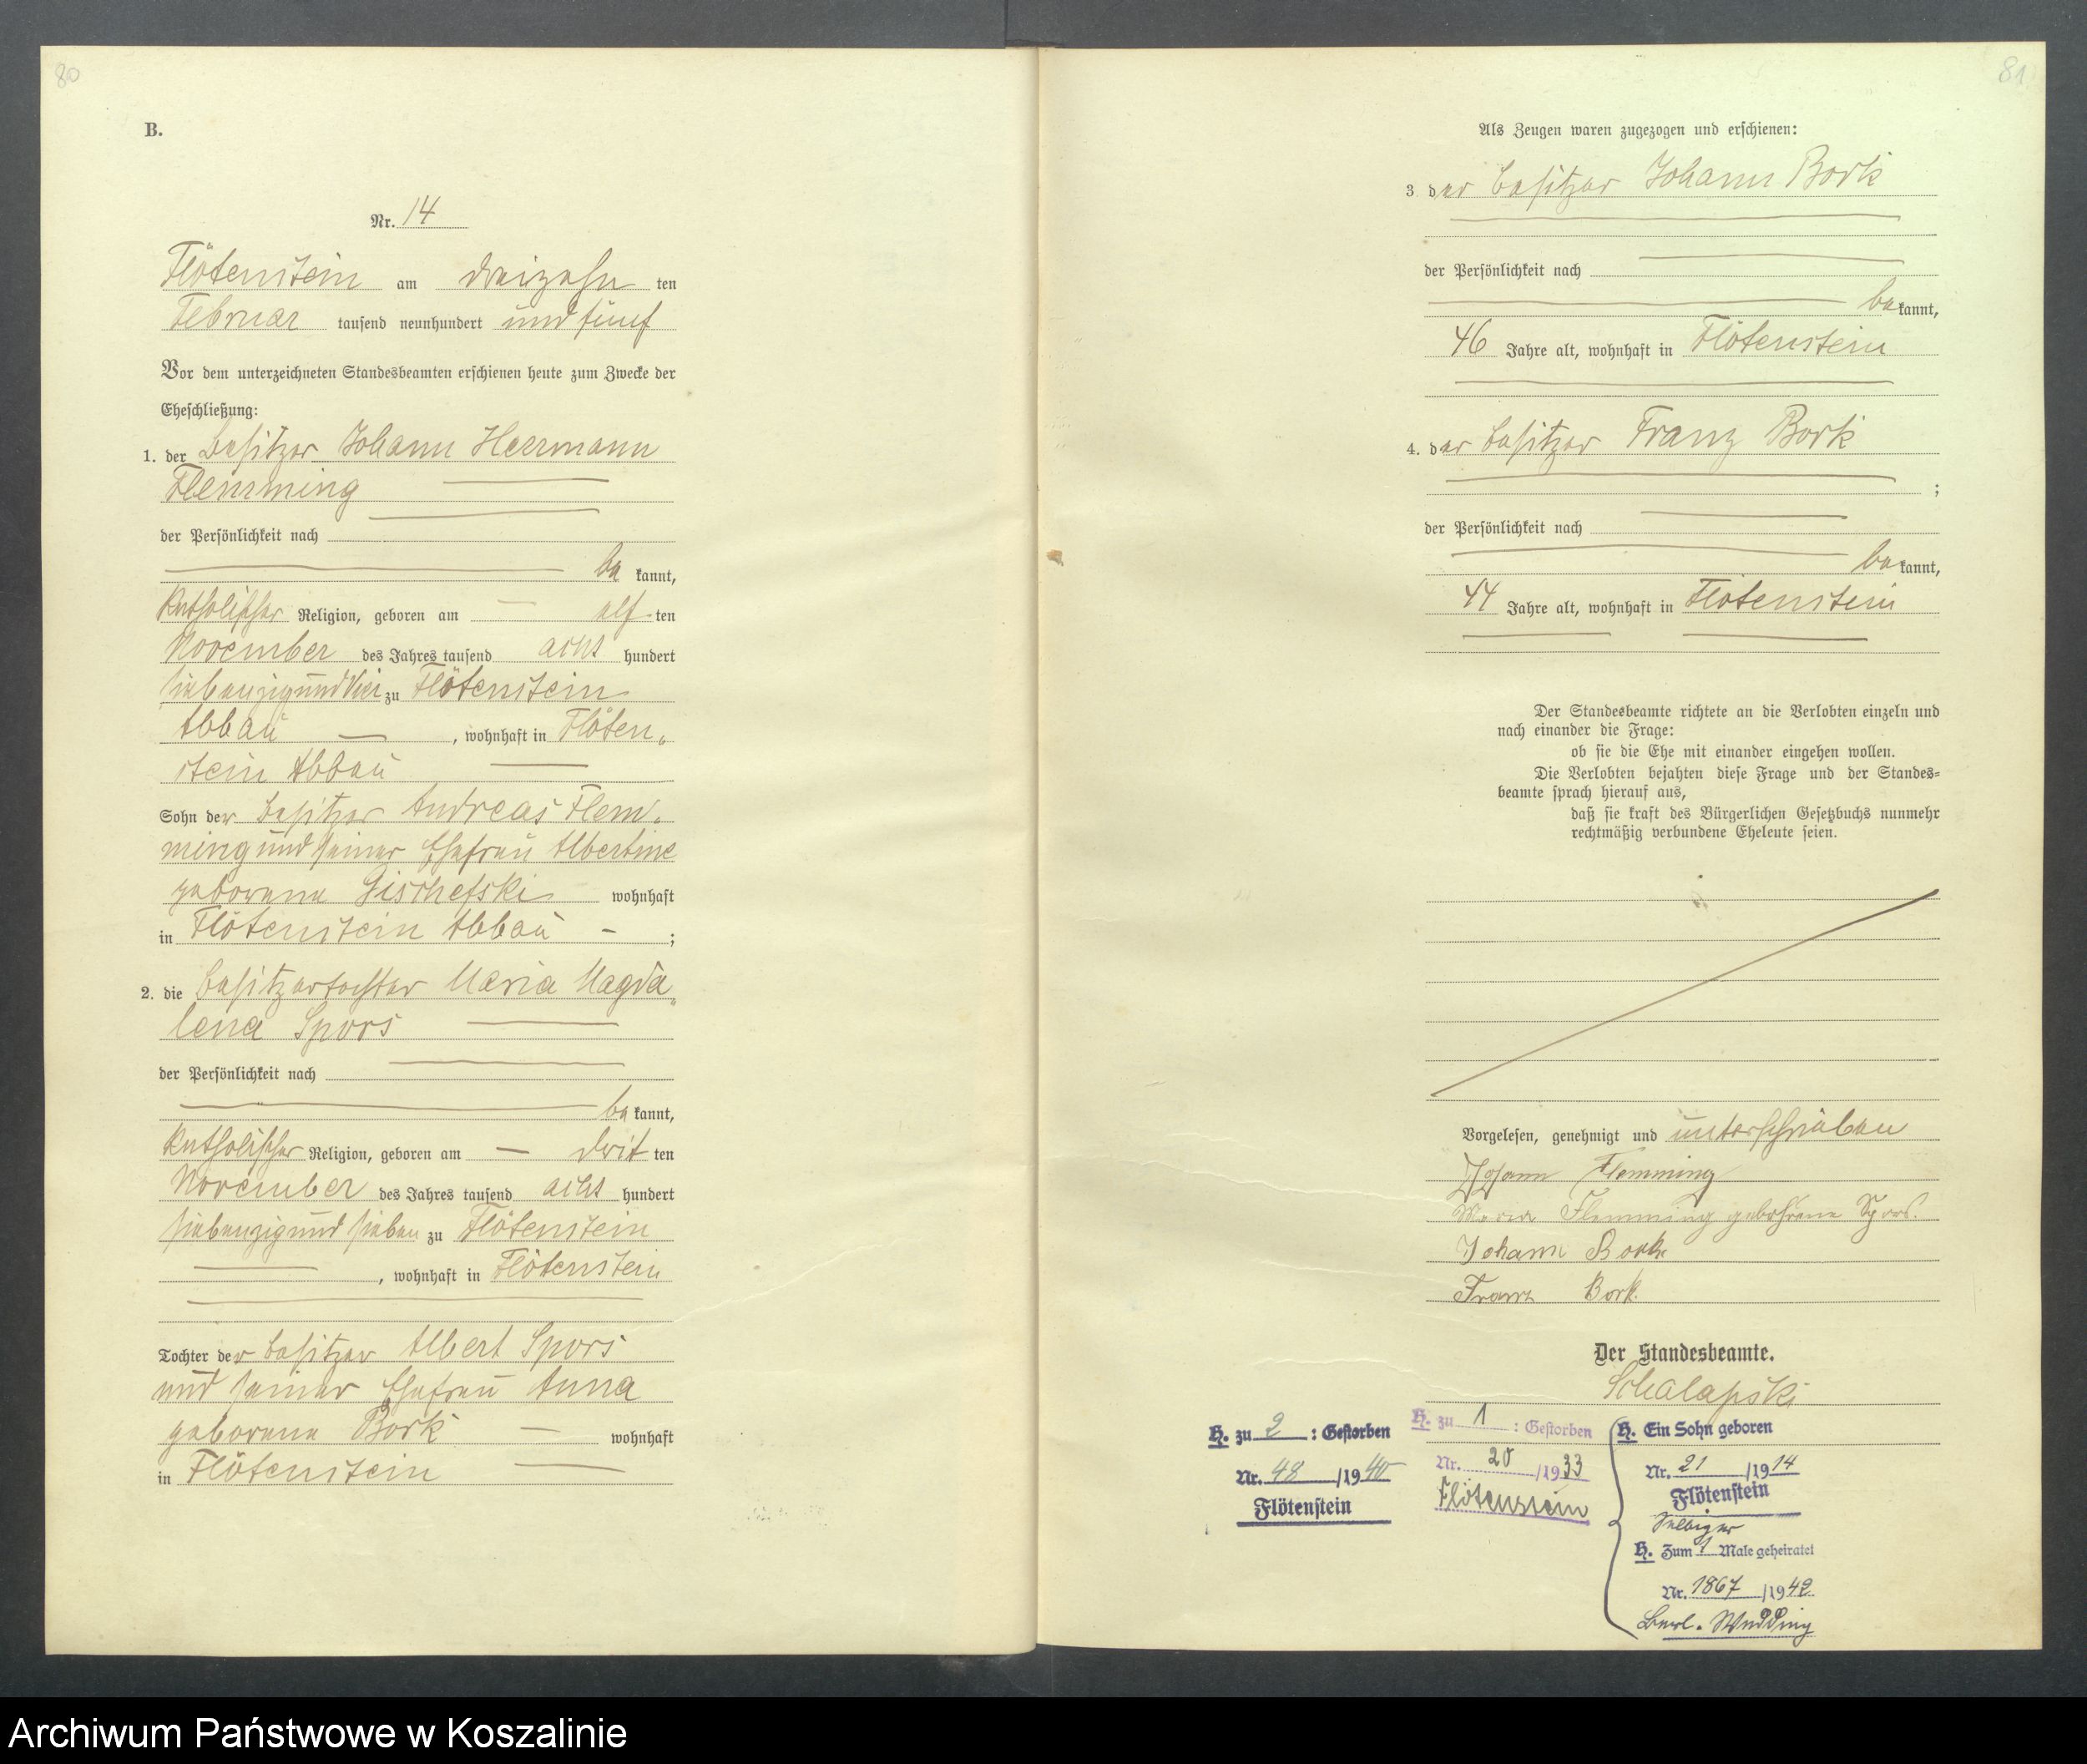 80
B.
Nr. 14
Flötenstein am dreizehn ten
Februar tausend neunhundert und fünf
Vor dem unterzeichneten Standesbeamten erschienen heute zum Zwecke der
Eheschließung:
1. der Besitzer Johann Herrmann
Flemming
der Persönlichkeit nach
be kannt,
katholischer Religion, geboren am elf ten
November des Jahres tausend acht hundert
siebenzig und vier zu Flötenstein
Abbau , wohnhaft in Flöten„
stein Abbau
Sohn der Besitzer Andreas Flem„
ming und seiner Ehefrau Albertine
geborene Gischefski wohnhaft
in Flötenstein Abbau ;
2. die Besitzertochter Maria Magda„
lena Spors
der Persönlichkeit nach
be kannt,
katholischer Religion, geboren am dritt ten
November des Jahres tausend acht hundert
siebenzig und sieben zu Flötenstein
, wohnhaft in Flötenstein
Tochter der Besitzer Albert Spors
und seiner Ehefrau Anna
geborene Bork wohnhaft
in Flötenstein
81
Als Zeugen waren zugezogen und erschienen:
3. der Besitzer Johann Bork
der Persönlichkeit nach
be kannt,
46 Jahre alt, wohnhaft in Flötenstein
4. der Besitzer Franz Bork
;
der Persönlichkeit nach
be kannt,
44 Jahre alt, wohnhaft in Flötenstein
Der Standesbeamte richtete an die Verlobten einzeln und
nach einander die Frage:
ob sie die Ehe mit einander eingehen wollen.
Die Verlobten bejahten diese Frage und der Standes-
beamte sprach hierauf aus,
daß sie kraft des Bürgerlichen Gesetzbuchs nunmehr
rechtmäßig verbundene Eheleute seien.
Vorgelesen, genehmigt und unterschrieben
Johann Flemming
Maria Flemming gebohrene Spors.
Johann Bork
Franz Bork.
Der Standesbeamte.
Schalapski
H. zu 2 : Gestorben
Nr. 48 /1940
Flötenstein
H. zu 1 : Gestorben
Nr. 20 /1933
Flötenstein
H. Ein Sohn geboren
Nr. 21 /1914
Flötenstein
Selbiger
H. Zum 1 Male geheiratet
Nr. 1867 /1942
Berl. Wedding
Archiwum Państwowe w Koszalinie